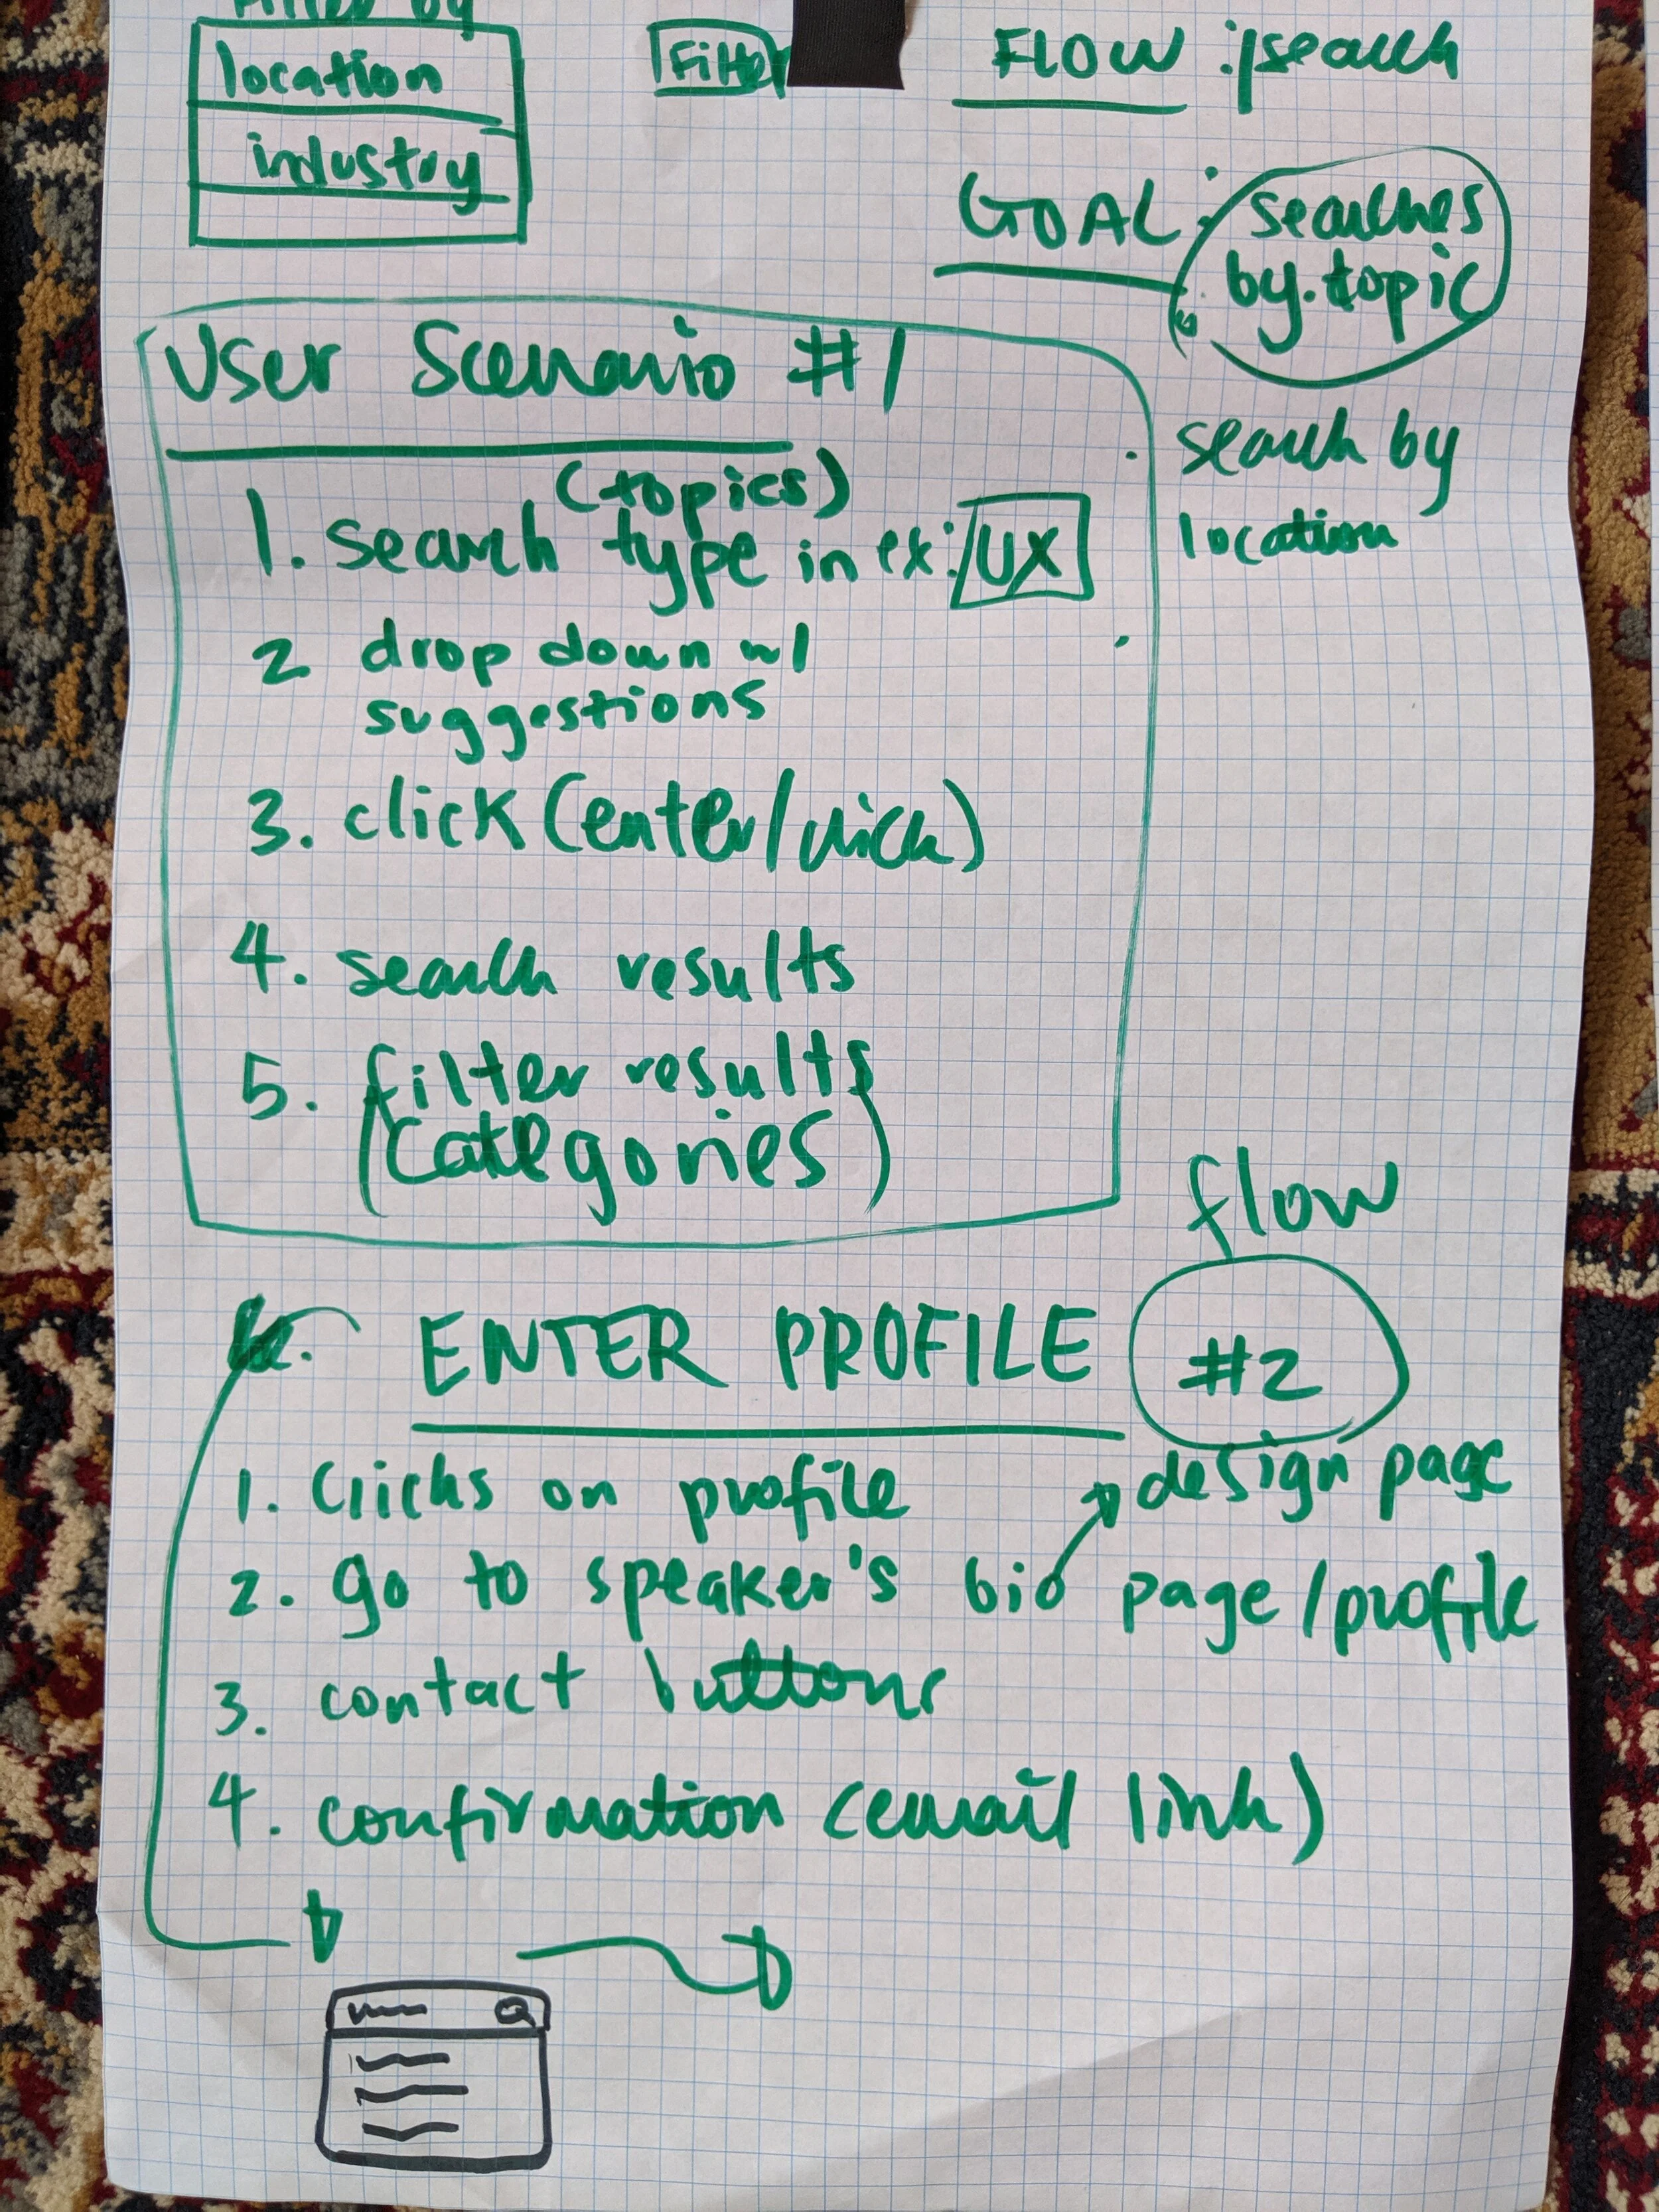 Filter by
location
industry
Filter
FLOW : search
GOAL :
searches
by topic
search by
location
User Scenario #1
(topics)
1. search type in ex: UX
2 drop down w/
suggestions
3. click (enter/click)
4. search results
5. filter results
(categories)
flow
#2
ENTER PROFILE
design page
1. Clicks on profile
2. go to speaker's bio page/profile
3. contact buttons
4. confirmation (email link)